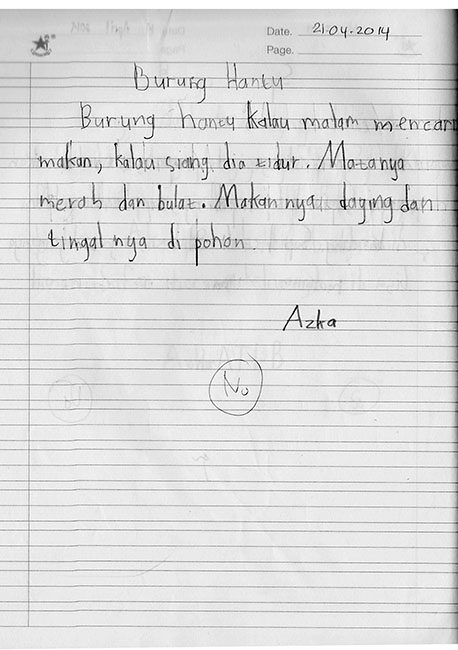 Date. 21.04.2014
Page.
Burung Hantu
Burung hantu kalau malam mencari
makan, kalau siang dia tidur. Matanya
merah dan bulat. Makannya daging dan
tingal nya di pohon.
Azka